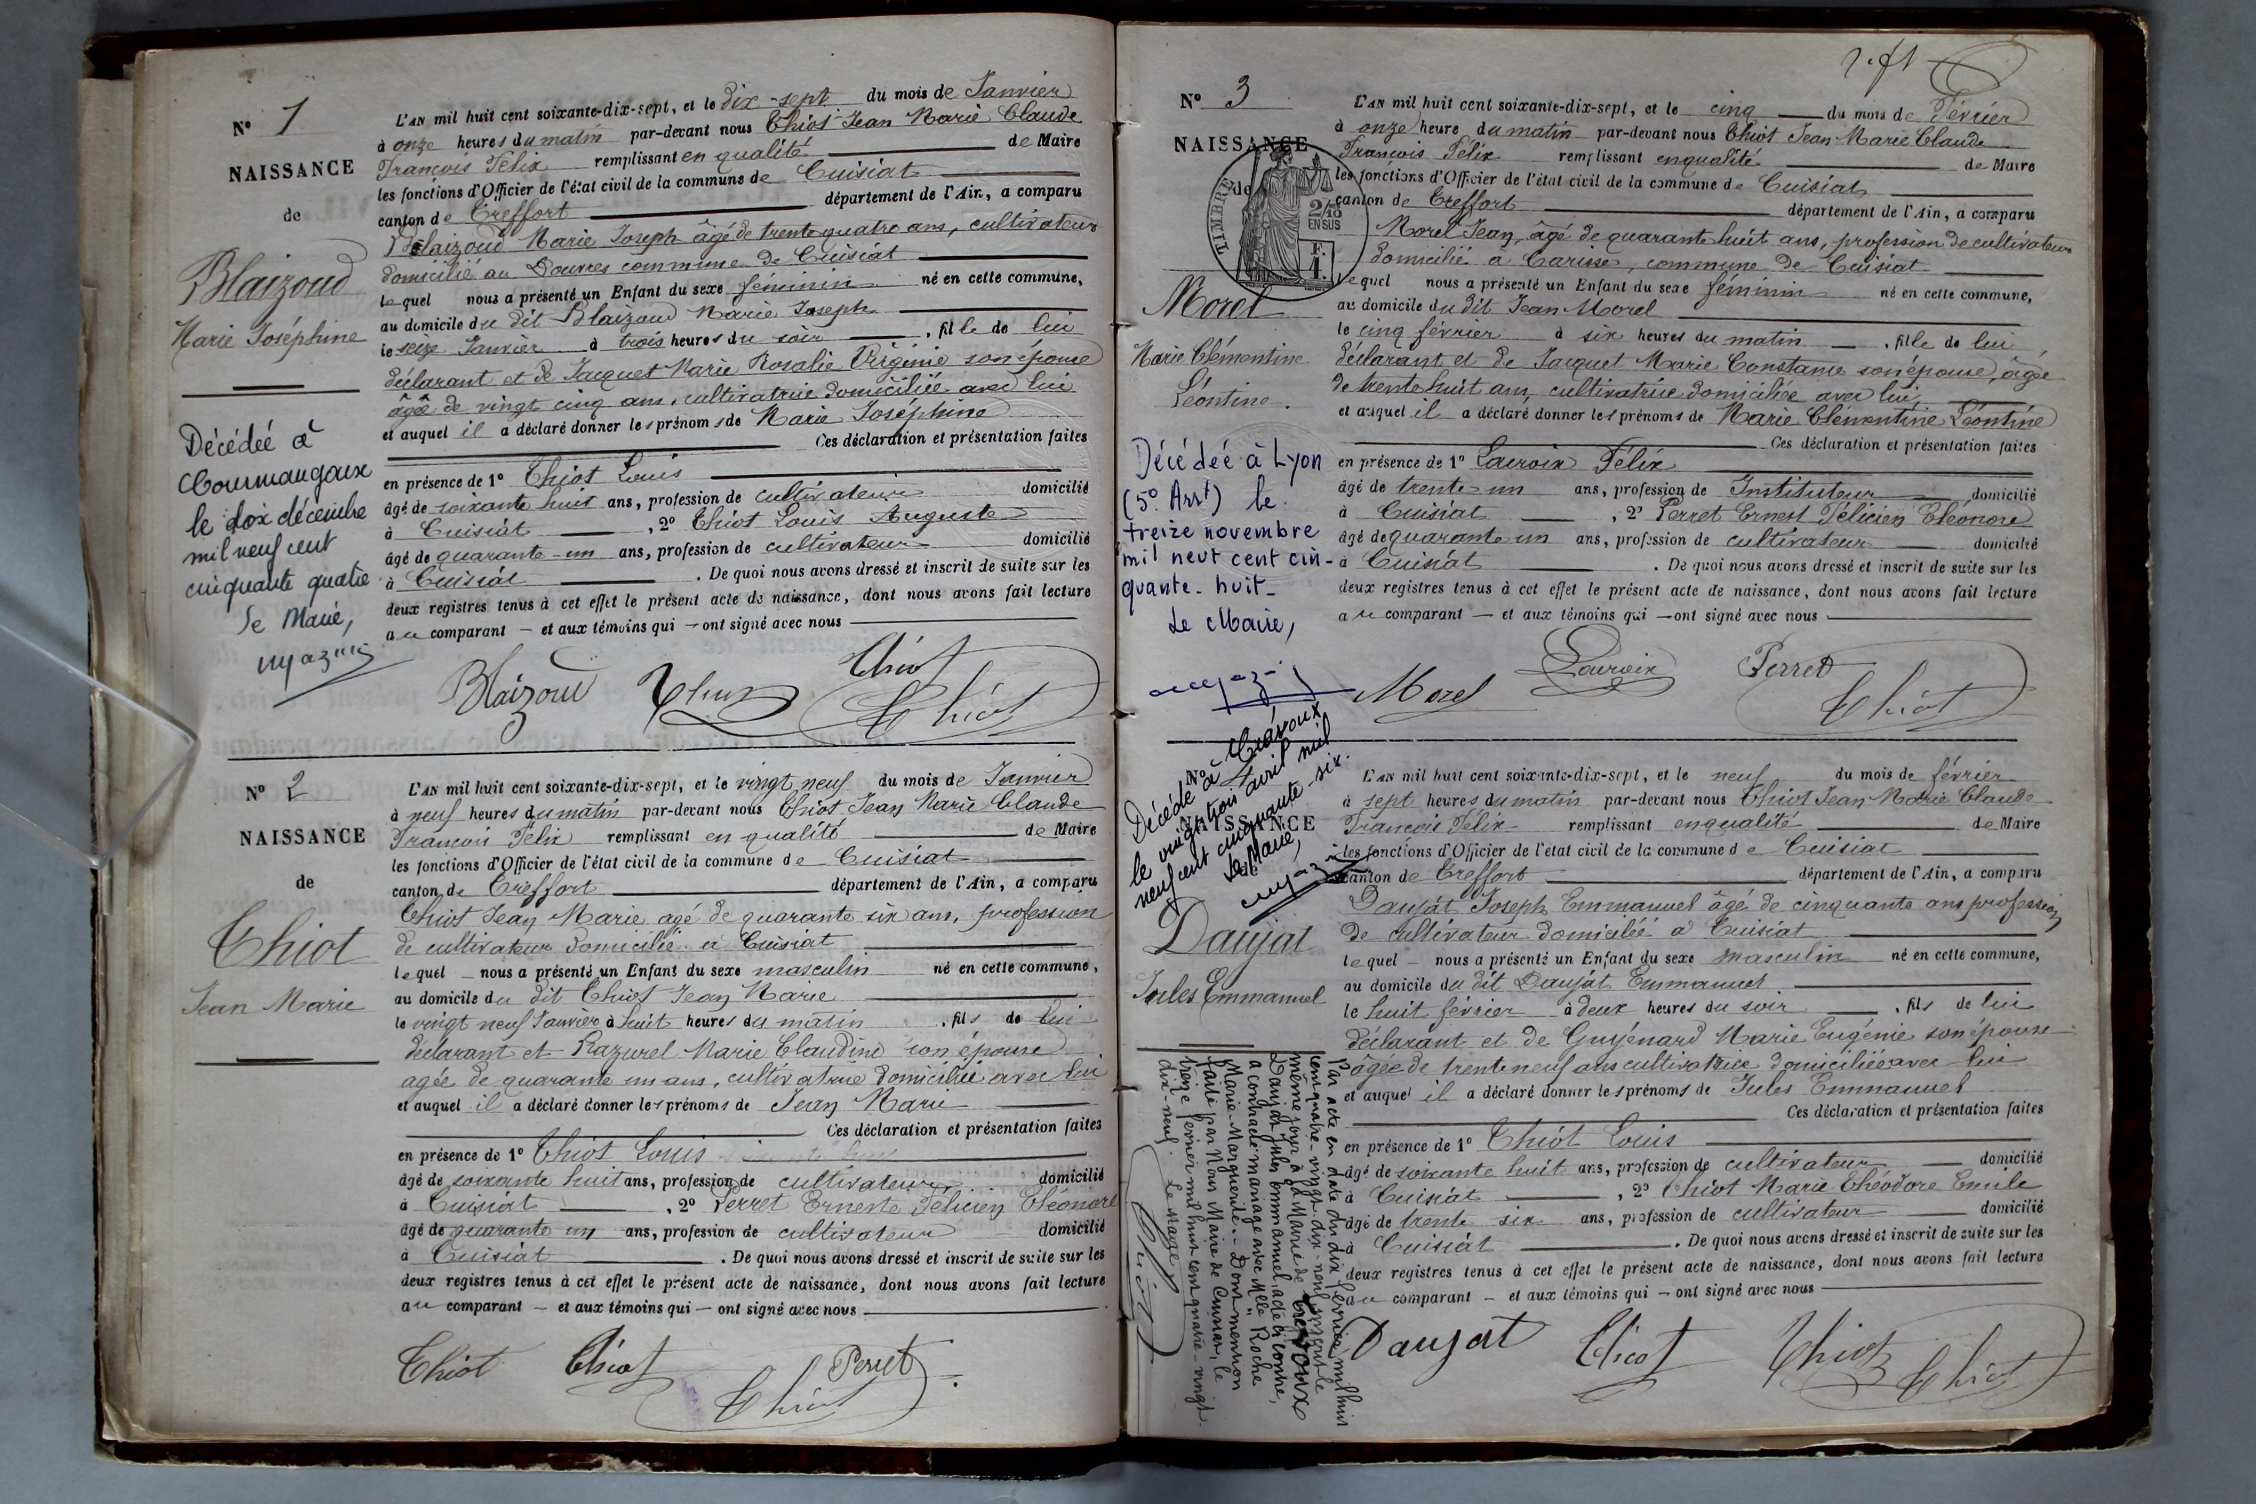 N° 1
NAISSANCE
de
Blaizoud
Marie Joséphine
Décédée à
Courmangoux
le dix décembre
mil neuf cent
cinquante quatre
Le Maire,
L'AN mil huit cent soixante-dix-sept, et le dix-sept du mois de Janvier
à onze heures du matin par-devant nous Chiot Jean Marie Claude
François Félix remplissant en qualité de Maire
les fonctions d'Officier de l'état civil de la commune de Cuisiat
canton de Treffort département de l'Ain, a comparu
Blaizoud Marie Joseph âgé de trente quatre ans, cultivateur
domicilié au Douvres commune de Cuisiat
lequel nous a présenté un Enfant du sexe féminin né en cette commune,
au domicile du dit Blaizoud Marie Joseph
le seize Janvier à trois heures du soir , fille de lui
déclarant et de Jacquet Marie Rosalie Virginie son épouse
âgée de vingt cinq ans, cultivatrice domiciliée avec lui
et auquel il a déclaré donner les prénoms de Marie Joséphine
Ces déclaration et présentation faites
en présence de 1° Chiot Louis
âgé de soixante huit ans, profession de cultivateur domicilié
à Cuisiat , 2° Chiot Louis Auguste
âgé de quarante-un ans, profession de cultivateur domicilié
à Cuisiat . De quoi nous avons dressé et inscrit de suite sur les
deux registres tenus à cet effet le présent acte de naissance, dont nous avons fait lecture
au comparant — et aux témoins qui — ont signé avec nous
Blaizoud Chiot Chiot
Chiot
N° 2
NAISSANCE
de
Chiot
Jean Marie
L'AN mil huit cent soixante-dix-sept, et le vingt neuf du mois de Janvier
à neuf heures du matin par-devant nous Chiot Jean Marie Claude
François Félix remplissant en qualité de Maire
les fonctions d'Officier de l'état civil de la commune de Cuisiat
canton de Treffort département de l'Ain, a comparu
Chiot Jean Marie agé de quarante six ans, profession
de cultivateur domicilié à Cuisiat
lequel — nous a présenté un Enfant du sexe masculin né en cette commune,
au domicile du dit Chiot Jean Marie
le vingt neuf Janvier à huit heures du matin , fils de lui
déclarant et Razurel Marie Claudine son épouse
agée de quarante un ans, cultivatrice domiciliée avec lui
et auquel il a déclaré donner les prénoms de Jean Marie
Ces déclaration et présentation faites
en présence de 1° Chiot Louis
âgé de soixante huit ans, profession de cultivateur domicilié
à Cuisiat , 2° Perret Erneste Félicien Eléonore
âgé de quarante un ans, profession de cultivateur domicilié
à Cuisiat . De quoi nous avons dressé et inscrit de suite sur les
deux registres tenus à cet effet le présent acte de naissance, dont nous avons fait lecture
au comparant — et aux témoins qui — ont signé avec nous
Chiot Chiot Perret
Chiot
N° 3
NAISSANCE
de
TIMBRE
2/10
EN SUS
F.
1.
Morel
Marie Clémentine
Léontine.
Décédée à Lyon
(5° Arrt) le
treize novembre
mil neuf cent cin-
quante-huit-
Le Maire,
L'AN mil huit cent soixante-dix-sept, et le cinq du mois de Février
à onze heure du matin par-devant nous Chiot Jean Marie Claude
François Félix remplissant en qualité de Maire
les fonctions d'Officier de l'état civil de la commune de Cuisiat
canton de Treffort département de l'Ain, a comparu
Morel Jean, âgé de quarante huit ans, profession de cultivateur
domicilié à Carisse, commune de Cuisiat
lequel nous a présenté un Enfant du sexe féminin né en cette commune,
au domicile du dit Jean Morel
le cinq février à six heures du matin — , fille de lui
déclarant et de Jacquet Marie Constance son épouse, âgée
de trente huit ans, cultivatrice domiciliée avec lui,
et auquel il a déclaré donner les prénoms de Marie Clémentine Léontine
Ces déclaration et présentation faites
en présence de 1° Lacroix Félix
âgé de trente-un ans, profession de Instituteur domicilié
à Cuisiat , 2° Perret Ernest Félicien Eléonore
âgé de quarante un ans, profession de cultivateur domicilié
à Cuisiat . De quoi nous avons dressé et inscrit de suite sur les
deux registres tenus à cet effet le présent acte de naissance, dont nous avons fait lecture
au comparant — et aux témoins qui — ont signé avec nous
Morel Lacroix Perret
Chiot
N° 4
NAISSANCE
de
Décédé à Trévoux
le vingt trois avril mil
neuf cent cinquante-six.
Le Maire,
Daujat
Jules Emmanuel
Par acte en date du dix février mil huit
cent quatre-vingt-dix-neuf inscrit le
même jour à la Mairie de Trévoux
Daujat Jules Emmanuel, acte ci contre,
a contracté mariage avec Mlle Roche
Marie-Marguerite.- Dont mention
faite par Nous Maire de Cuisiat, le
treize février mil huit cent quatre-vingt-
dix-neuf. Le Maire
Chiot
L'AN mil huit cent soixante-dix-sept, et le neuf du mois de février
à sept heures du matin par-devant nous Chiot Jean Marie Claude
François Félix remplissant en qualité de Maire
les fonctions d'Officier de l'état civil de la commune de Cuisiat
canton de Treffort département de l'Ain, a comparu
Daujat Joseph Emmanuel âgé de cinquante ans profession
de cultivateur domicilié à Cuisiat
lequel — nous a présenté un Enfant du sexe masculin né en cette commune,
au domicile du dit Daujat Emmanuel
le huit février à deux heures du soir , fils de lui
déclarant et de Guyénard Marie Eugénie son épouse
âgée de trente neuf ans cultivatrice domiciliée avec lui
et auquel il a déclaré donner les prénoms de Jules Emmanuel
Ces déclaration et présentation faites
en présence de 1° Chiot Louis
âgé de soixante huit ans, profession de cultivateur domicilié
à Cuisiat , 2° Chiot Marie Théodore Emile
âgé de trente six ans, profession de cultivateur domicilié
à Cuisiat . De quoi nous avons dressé et inscrit de suite sur les
deux registres tenus à cet effet le présent acte de naissance, dont nous avons fait lecture
au comparant — et aux témoins qui — ont signé avec nous
Daujat Chiot Chiot
Chiot